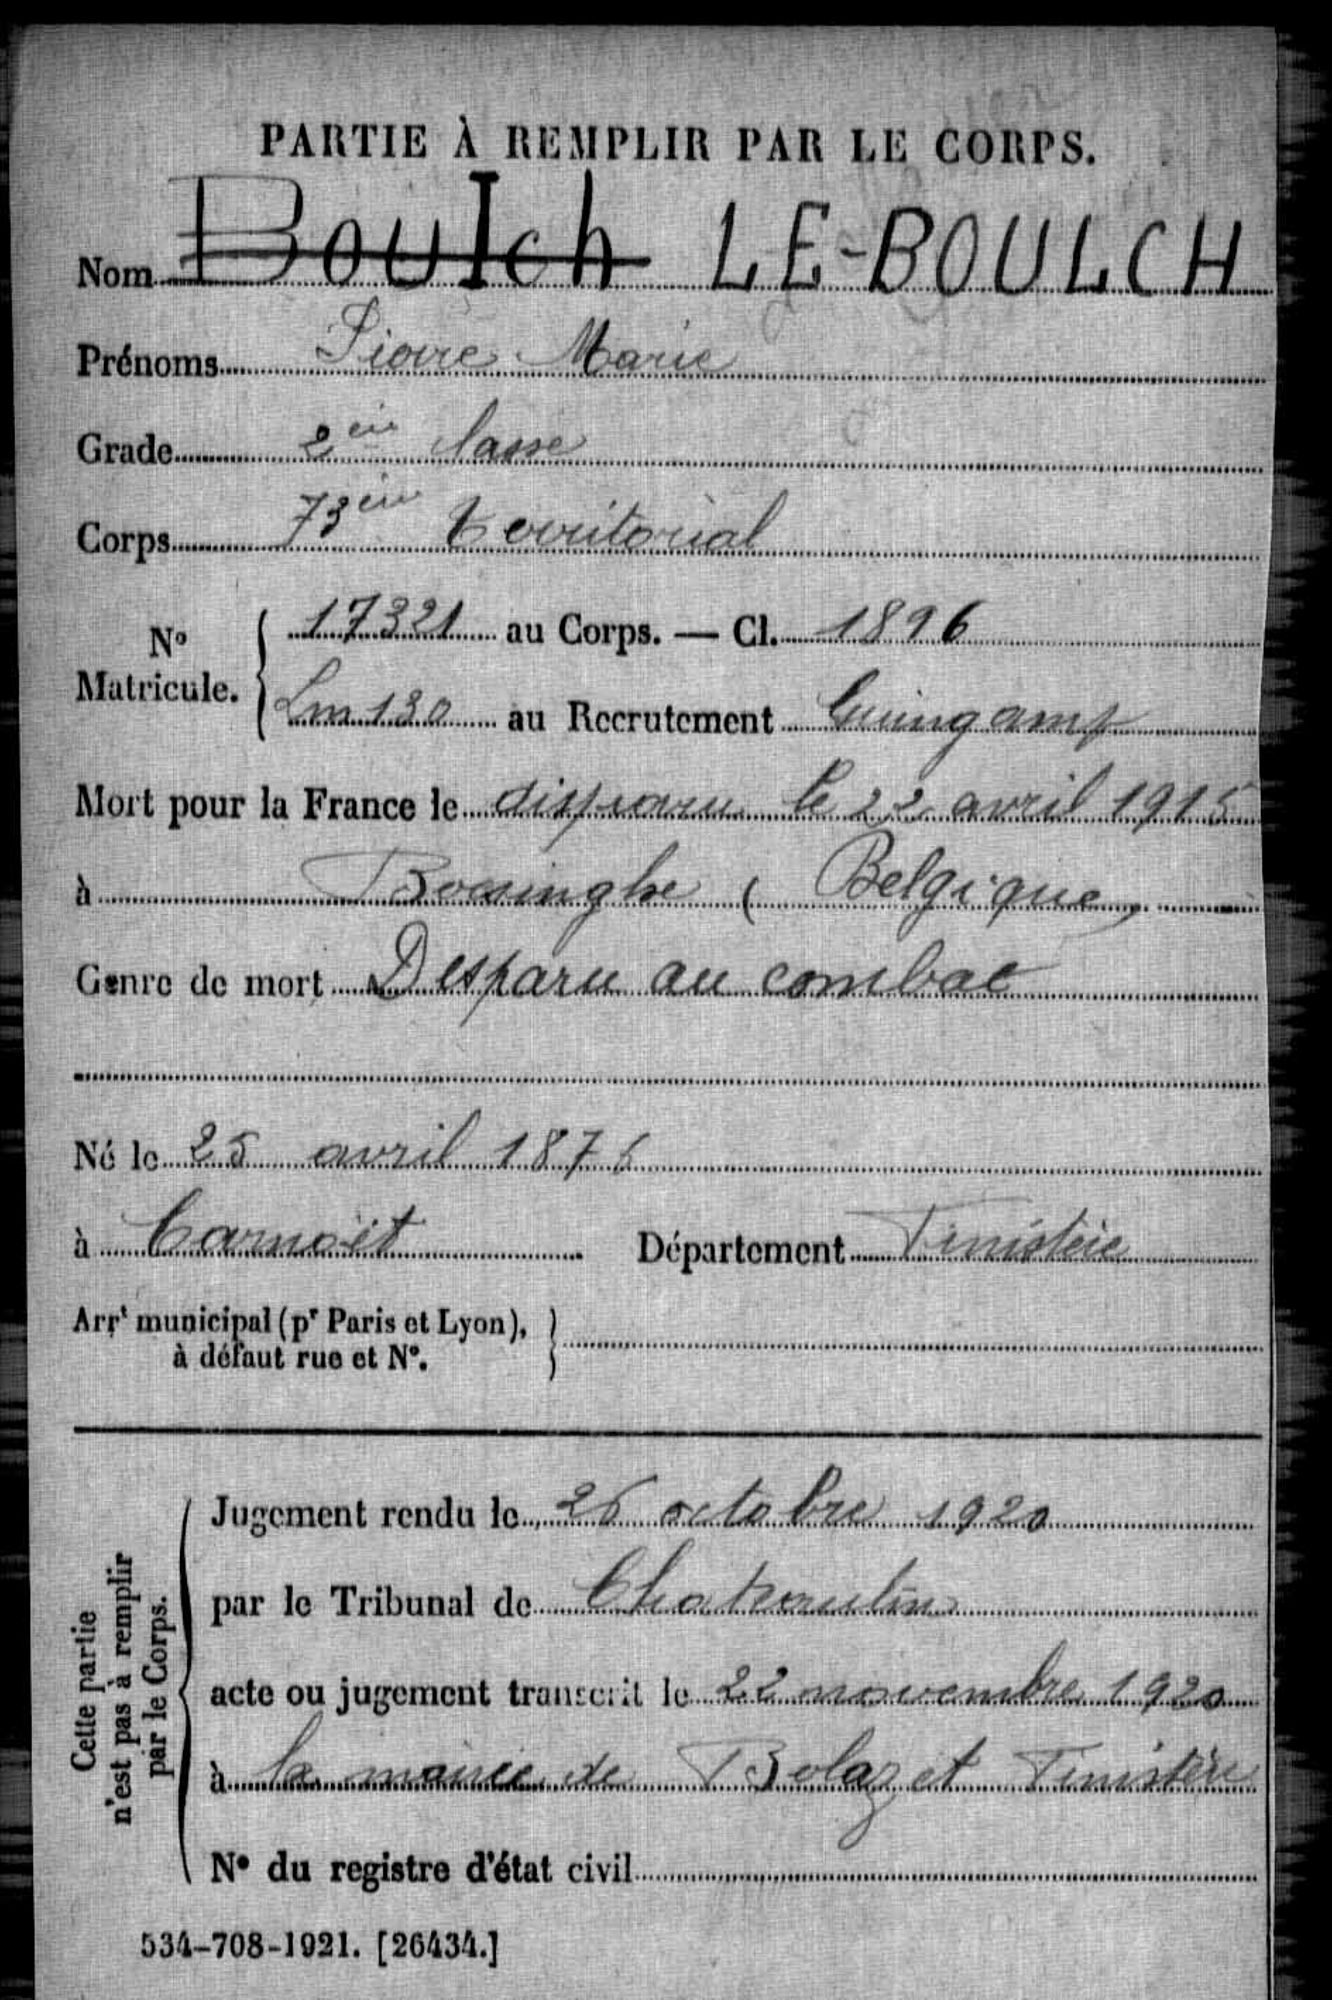 PARTIE À REMPLIR PAR LE CORPS.
Nom Boulch LE-BOULCH
Prénoms Pierre Marie
Grade 2ème classe
Corps 73ème territorial
N° Matricule. 17321 au Corps. — Cl. 1896
Lm 130 au Recrutement Guingamp
Mort pour la France le disparu le 22 avril 1915
à Boesinghe ( Belgique)
Genre de mort Disparu au combat
Né le 25 avril 1876
à Carnoët Département Finistère
Arrt municipal (pr Paris et Lyon),
à défaut rue et N°.
Cette partie
n'est pas à remplir
par le Corps.
Jugement rendu le 26 octobre 1920
par le Tribunal de Chateaulin
acte ou jugement transcrit le 22 novembre 1920
à la mairie de Bolazet Finistère
N° du registre d'état civil
534-708-1921. [26434.]